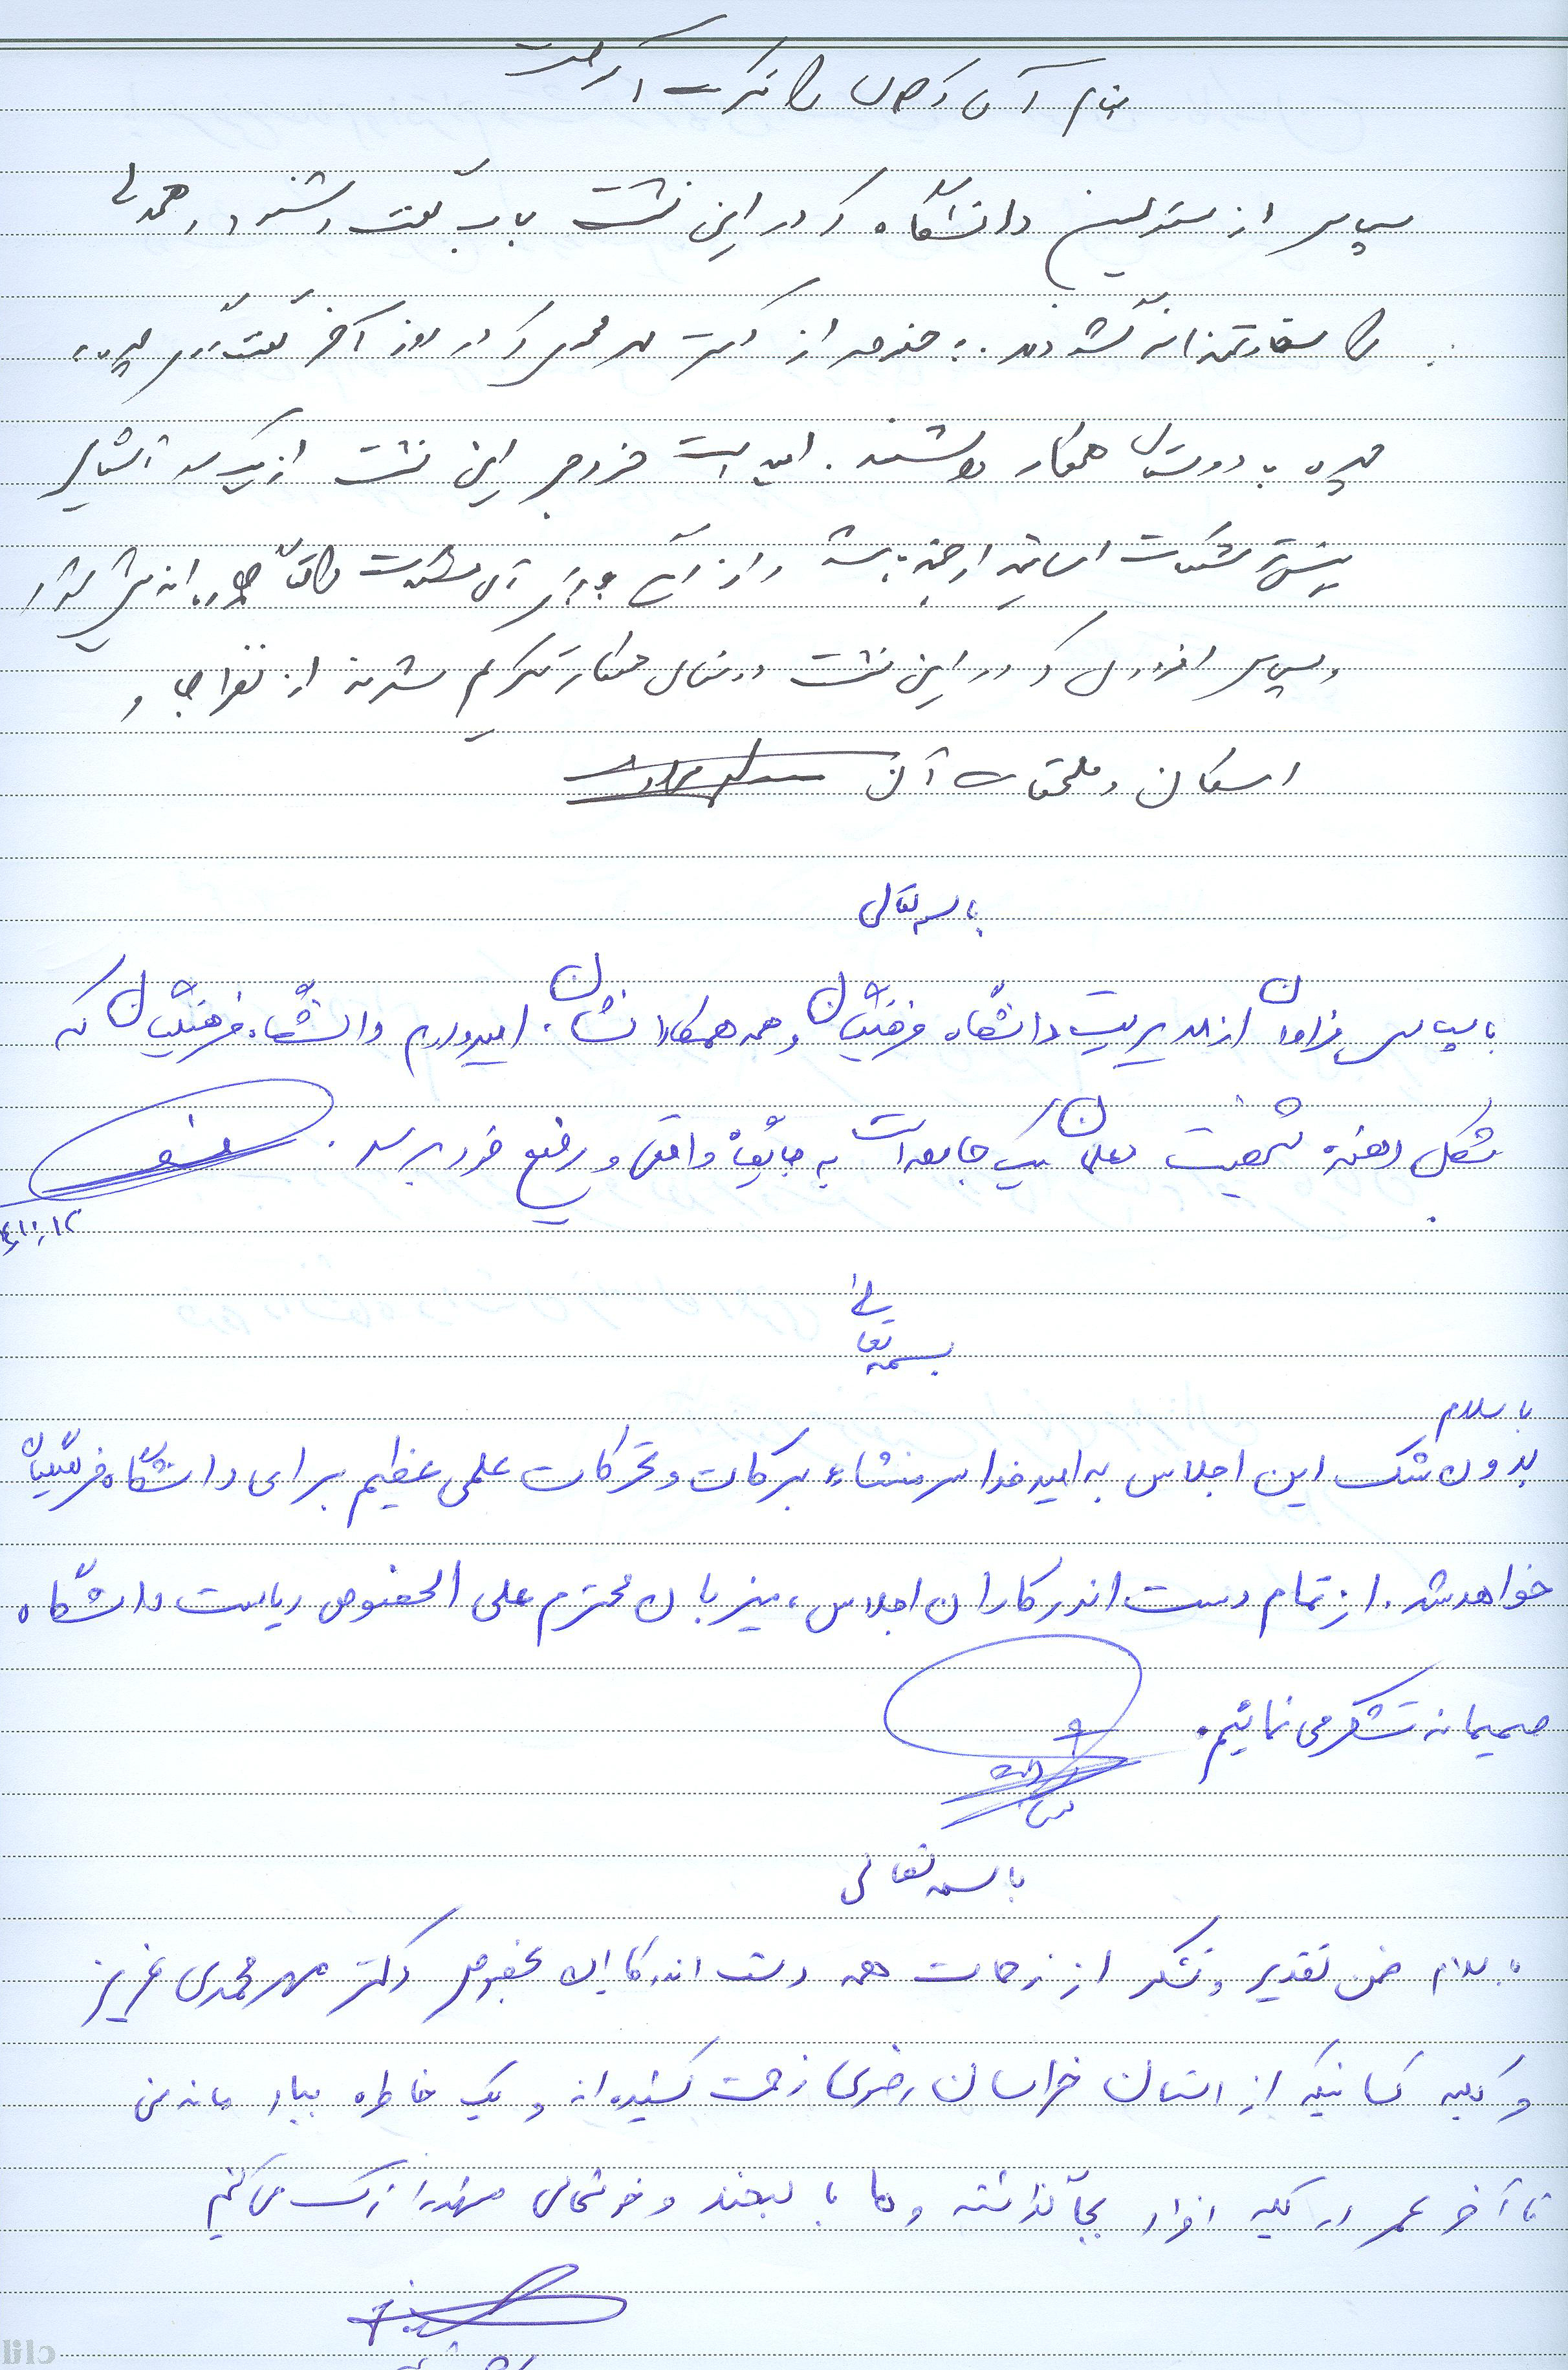 بنام آن که جان را فکرت آموخت
سپاس از مسئولین دانشگاه که در این نشست باب گفت و شنود و همدلی
را سخاوتمندانه گشودند. بخصوص از دکتر مهرمحمدی که در روز آخر گفتگوی چهره
چهره با دوستان همکار داشتند. امید است خروجی این نشست از یک سو آشنایی
بیشتر مشکلات اساتید ارجمند باشد و از آن
و سپاس افزون که در این نشست دوستان همکار تکریم شدند از نظر جا و
اسکان و ملحقات آن
باسمه تعالی
با سپاس فراوان از مدیریت دانشگاه فرهنگیان و همه همکارانشان. امیدوارم دانشگاه فرهنگیان که
شکل دهنده شخصیت معلمان یک جامعه است به جایگاه واقعی و رفیع خود برسد.
بسمه تعالی
با سلام
بدون شک این اجلاس به امید خدا سر منشاء برکات و تحرکات علمی عظیم برای دانشگاه فرهنگیان
خواهد شد. از تمام دست اندرکاران اجلاس، میزبان محترم علی الخصوص ریاست دانشگاه
صمیمانه تشکر می نمائیم.
باسمه تعالی
با سلام ضمن تقدیر و تشکر از زحمات همه دست اندرکاران بخصوص دکتر مهرمحمدی عزیز
و کلیه کسانیکه از استان خراسان رضوی زحمت کشیده اند و یک خاطره بیاد ماندنی
تا آخر عمر در کلیه افراد بجا گذاشته و ما با لبخند و خوشحالی مشهد را ترک می کنیم